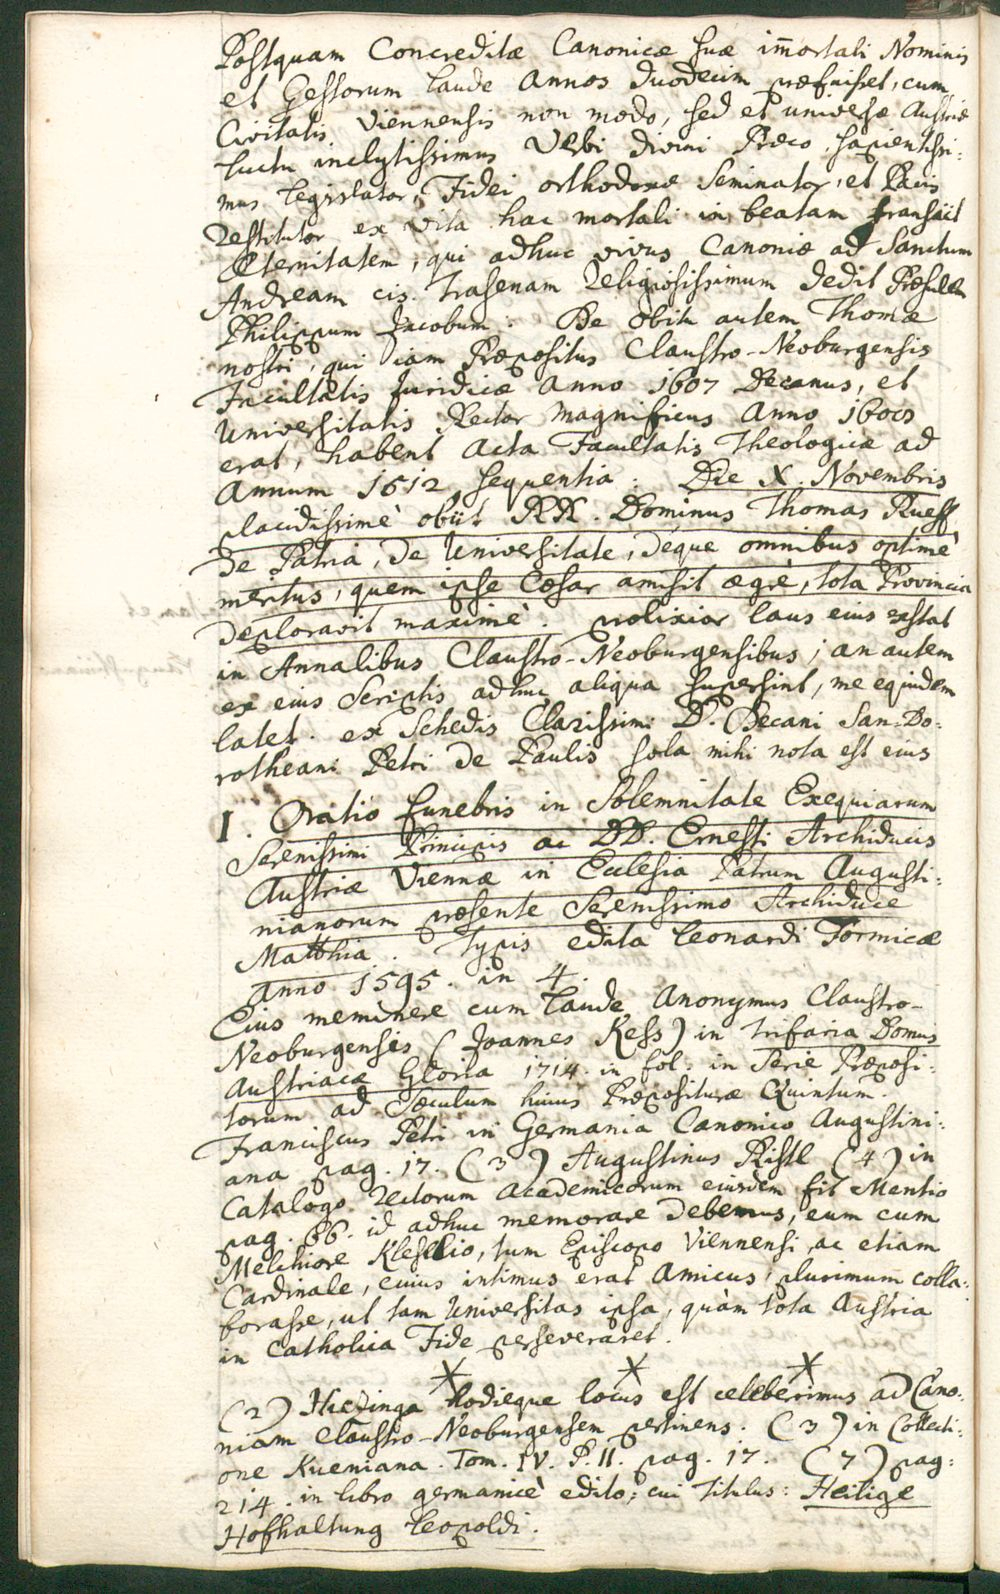 Postquam Concreditæ Canonicæ suæ im̄ortali Nominis
et Gestorum laude Annos duodecim præfuisset, cum
Civitatis Viennensis non modo, sed et universæ Austriæ
luctu inclytissimus Verbi divini Præco, sapientissi:
mus legislator, Fidei orthodoxæ Seminator, et Pacis
restitutor ex vita hac mortali in beatam transiit
Æternitatem, qui adhuc vivus Canoniæ ad Sanctum
Andream cis. Trasenam religiosissimum dedit Præsulem
Philippum Jacobum. De obitu autem Thomæ
nostri, qui iam Præpositus Claustro-Neoburgensis
Facultatis Juridicæ Anno 1607 Decanus, et
Universitatis Rector Magnificus Anno
erat, habent Acta Facultatis Theologicæ ad
Annum 1612 sequentia: Die X. Novembris
placidissimè obiit RR. Dominus Thomas Rueff
de Patria, de Universitate, déque omnibus optimè
meritus, quem ipse Cæsar amisit ægrè, tota Provincia
deploravit maximè. prolixior laus eius exstat
in Annalibus Claustro-Neoburgensibus; an autem
ex eius Scriptis adhuc aliqua supersint, me equidem
latet. ex Schedis Clarissimi D. Decani San-Do:
rotheani Petri de Paulis sola mihi nota est eius
I. Oratio funebris in Solemnitate Exequiarum
Serenissimi Principis ac DD. Ernesti Archiducis
Austriæ Viennæ in Ecclesia Patrum Augusti:
nianorum præsente Serenissimo Archiduce
Matthia. Typis edita Leonardi Formicæ
anno 1595. in 4.
Eius meminere cum laude Anonymus Claustro-
Neoburgensis (Joannes Kess) in Trifaria Domus
Austriacæ Gloria 1714. in fol. in Serie Præposi:
torum ad Sæculum huius Præposituræ Quintum.
Franciscus Petri in Germania Canonico Augustini:
ana pag. 17. (3) Augustinus Ristl (4) in
Catalogo rectorum Academicorum eiusdem fit Mentio
pag. 66. id adhuc memorare debemus, eum cum
Melchiore Kleselio, tum Episcopo Viennensi, ac etiam
Cardinale, cuius intimus erat Amicus, plurimum colla:
borasse, ut tam Universitas ipsa, quàm tota Austria
in Catholica Fide perseveraret.
* * *
(2) Hiezinga hodieque locus est celeberrimus ad Cano:
niam Claustro-Neoburgensem pertinens. (3) in Collecti:
one Kueniana. Tom. IV. P. II. pag. 17. (7) pag:
214. in libro germanicè edito, cui Titulus: Heilige
Hofhaltung Leopoldi.